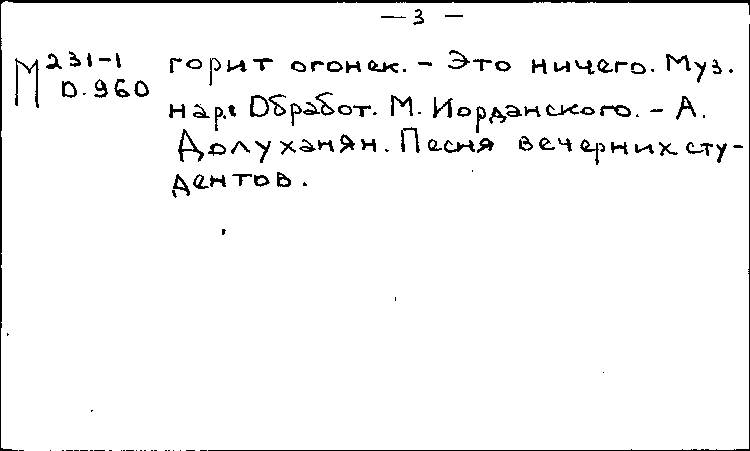 — 3 —
М 231-1 горит огонек. - Это ничего. Муз.
D.960
нар. Обработ. М. Иорданского. - А.
Долуханян. Песня вечерних сту-
дентов.